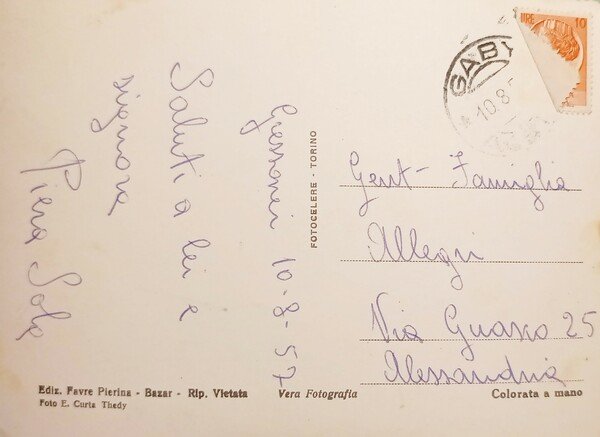 LIRE 10
GABY
10.8.5
Gressoney 10-8-57
Saluti a lei e
signora
Piera Sola
FOTOCELERE - TORINO
Gent- Famiglia
Allegri
Via Guasco 25
Alessandria
Ediz. Favre Pierina - Bazar - Rip. Vietata
Foto E. Curta Thedy
Vera Fotografia
Colorata a mano